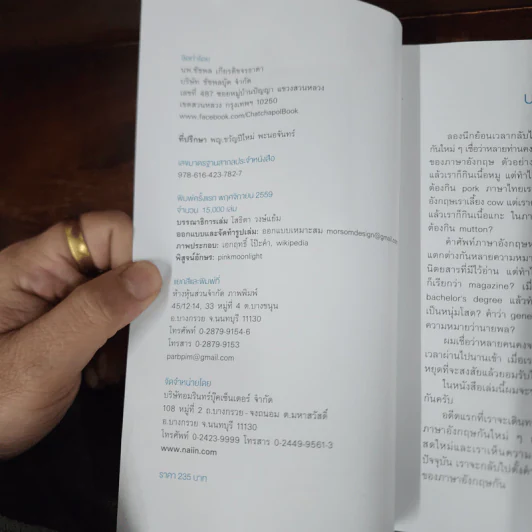 จัดทำโดย
นพ.ชัชพล เกียรติขจรธาดา
บริษัท ชัชพลบุ๊ค จำกัด
เลขที่ 487 ซอยหมู่บ้านปัญญา แขวงสวนหลวง
เขตสวนหลวง กรุงเทพฯ 10250
www.facebook.com/ChatchapolBook
ที่ปรึกษา พญ.ขวัญปีใหม่ พะนอจันทร์
เลขมาตรฐานสากลประจำหนังสือ
978-616-423-782-7
พิมพ์ครั้งแรก พฤศจิกายน 2559
จำนวน 15,000 เล่ม
บรรณาธิการเล่ม โสธิดา วงษ์แย้ม
ออกแบบและจัดทำรูปเล่ม: ออกแบบเหมาะสม morsomdesign@gmail.com
ภาพประกอบ: เอกฤทธิ์ โป๊ะดำ, wikipedia
พิสูจน์อักษร: pinkmoonlight
แยกสีและพิมพ์ที่
ห้างหุ้นส่วนจำกัด ภาพพิมพ์
45/12-14, 33 หมู่ที่ 4 ต.บางขนุน
อ.บางกรวย จ.นนทบุรี 11130
โทรศัพท์ 0-2879-9154-6
โทรสาร 0-2879-9153
parbpim@gmail.com
จัดจำหน่ายโดย
บริษัทอมรินทร์บุ๊คเซ็นเตอร์ จำกัด
108 หมู่ที่ 2 ถ.บางกรวย - จงถนอม ต.มหาสวัสดิ์
อ.บางกรวย จ.นนทบุรี 11130
โทรศัพท์ 0-2423-9999 โทรสาร 0-2449-9561-3
www.naiin.com
ราคา 235 บาท
ลองนึกย้อนเวลากลับไ
กันใหม่ ๆ เชื่อว่าหลายท่านคง
ของภาษาอังกฤษ ตัวอย่าง
แล้วเราก็กินเนื้อหมู แต่ทำไ
ต้องกิน pork ภาษาไทยเร
อังกฤษเราเลี้ยง cow แต่เราก
แล้วเราก็กินเนื้อแกะ ในภา
ต้องกิน mutton?
คำศัพท์ภาษาอังกฤษ
แตกต่างกันหลายความหมา
นิตยสารที่มีไว้อ่าน แต่ทำไ
ก็เรียกว่า magazine? เมื่
bachelor's degree แล้วท
เป็นหนุ่มโสด? คำว่า gene
ความหมายว่านายพล?
ผมเชื่อว่าหลายคนคงจ
เวลาผ่านไปนานเข้า เมื่อเร
หยุดที่จะสงสัยแล้วยอมรับไ
ในหนังสือเล่มนี้ผมจะ
กันครับ
อดีตแรกที่เราจะเดินท
ภาษาอังกฤษกันใหม่ ๆ
สดใหม่และเราเห็นความ
ปัจจุบัน เราจะกลับไปตั้งค
ของภาษาอังกฤษกัน